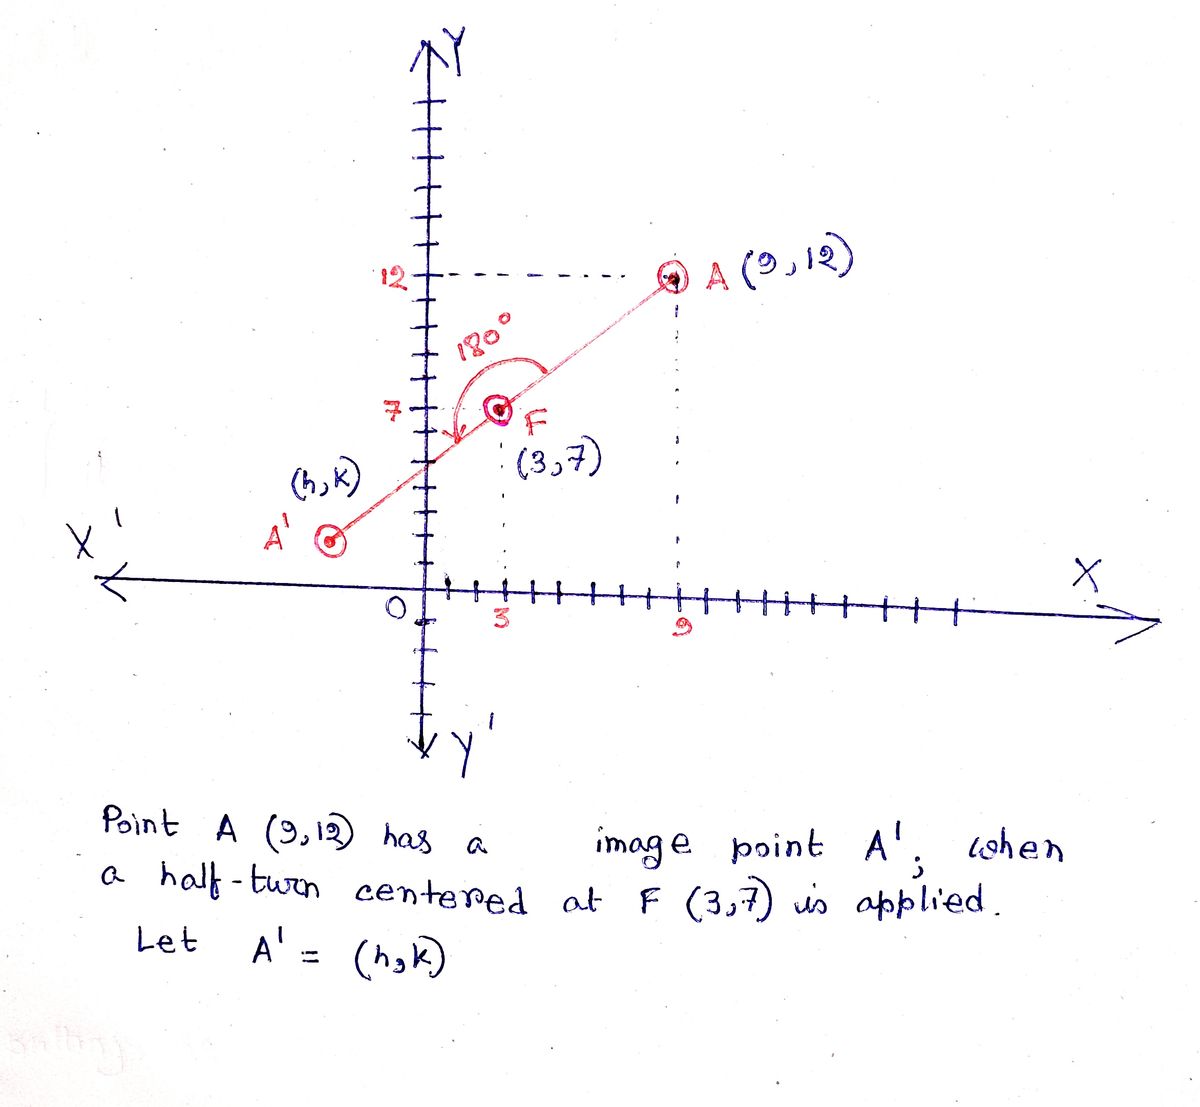 Y
12
A (9,12)
180°
7
F
(3,7)
(h,k)
A'
X'
X
O
3
9
Y'
Point A (9,12) has a image point A', when
a half-turn centered at F (3,7) is applied.
Let A' = (h,k)